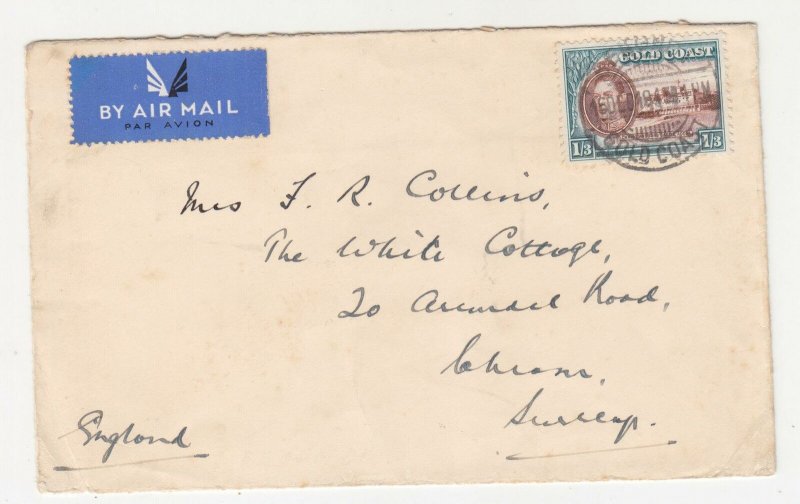 BY AIR MAIL
PAR AVION
GOLD COAST
1/3 1/3
GOLD COAST
Mrs F. R. Collins,
The White Cottage,
20 Arundel Road,
Cheam,
Surrey.
England